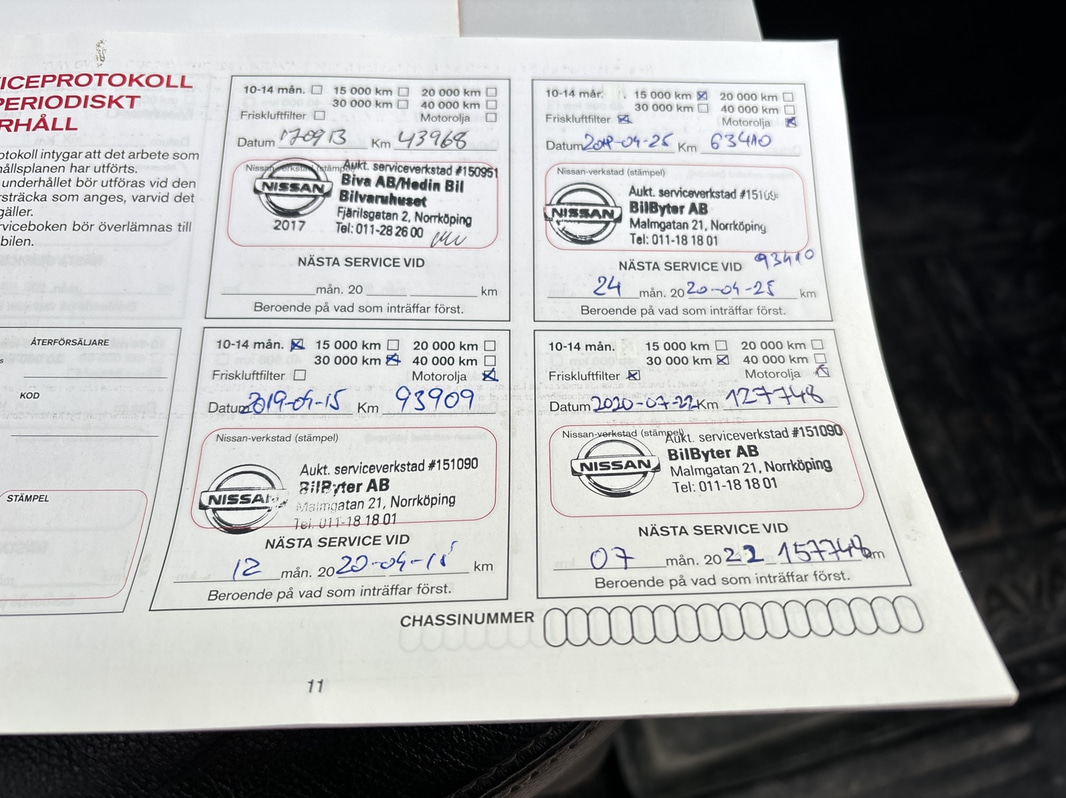 ICEPROTOKOLL
PERIODISKT
RHÅLL
otokoll intygar att det arbete som
hållsplanen har utförts.
underhållet bör utföras vid den
rsträcka som anges, varvid det
gäller.
rviceboken bör överlämnas till
bilen.
10-14 mån. 15 000 km 20 000 km
30 000 km 40 000 km
Friskluftfilter Motorolja
Datum 170913 Km 43968
Nissan-verkstad (stämpel)
Aukt. serviceverkstad #150951
NISSAN
2017
Biva AB/Hedin Bil
Bilvaruhuset
Fjärilsgatan 2, Norrköping
Tel: 011-28 26 00
NÄSTA SERVICE VID
mån. 20 km
Beroende på vad som inträffar först.
10-14 mån. 15 000 km 20 000 km
30 000 km 40 000 km
Friskluftfilter Motorolja
Datum 2018-04-25 Km 63410
Nissan-verkstad (stämpel)
NISSAN
Aukt. serviceverkstad #15109
BilByter AB
Malmgatan 21, Norrköping
Tel: 011-18 18 01
NÄSTA SERVICE VID 93410
24 mån. 20 20-04-25 km
Beroende på vad som inträffar först.
ÅTERFÖRSÄLJARE
KOD
STÄMPEL
10-14 mån. 15 000 km 20 000 km
30 000 km 40 000 km
Friskluftfilter Motorolja
Datum 2019-04-15 Km 93909
Nissan-verkstad (stämpel)
NISSAN
Aukt. serviceverkstad #151090
BilByter AB
Malmgatan 21, Norrköping
Tel: 011-18 18 01
NÄSTA SERVICE VID
12 mån. 20 20-04-15 km
Beroende på vad som inträffar först.
10-14 mån. 15 000 km 20 000 km
30 000 km 40 000 km
Friskluftfilter Motorolja
Datum 2020-07-22 Km 127748
Nissan-verkstad (stämpel)
NISSAN
Aukt. serviceverkstad #151090
BilByter AB
Malmgatan 21, Norrköping
Tel: 011-18 18 01
NÄSTA SERVICE VID
07 mån. 20 22 157748 km
Beroende på vad som inträffar först.
CHASSINUMMER
11